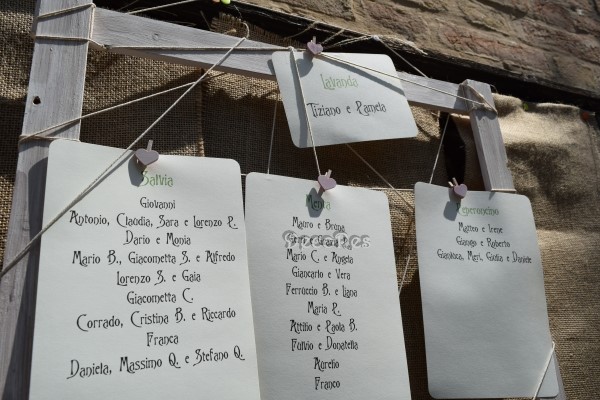 Lavanda
Tiziano e Pamela
Salvia
Giovanni
Antonio, Claudia, Sara e Lorenzo P.
Dario e Monia
Mario B., Giacometta S. e Alfredo
Lorenzo S. e Gaia
Giacometta C.
Corrado, Cristina B. e Riccardo
Franca
Daniela, Massimo Q. e Stefano Q.
Menta
Mauro e Bruna
Mario C. e Angela
Giancarlo e Vera
Ferruccio B. e Liana
Maria P.
Attilio e Paola B.
Fulvio e Donatella
Aurelio
Franco
Peperoncino
Matteo e Irene
Giungo e Roberta
Gianluca, Meri, Giulia e Daniele